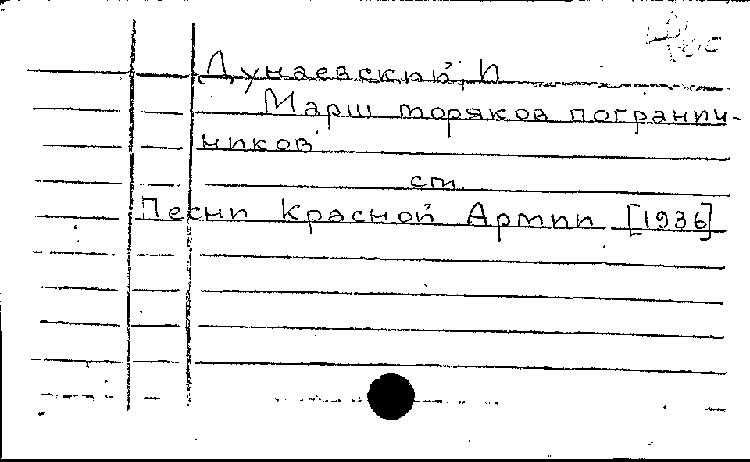 Дунаевский, И
Марш моряков погранич-
ников
см.
Песни Красной Армии [1936]